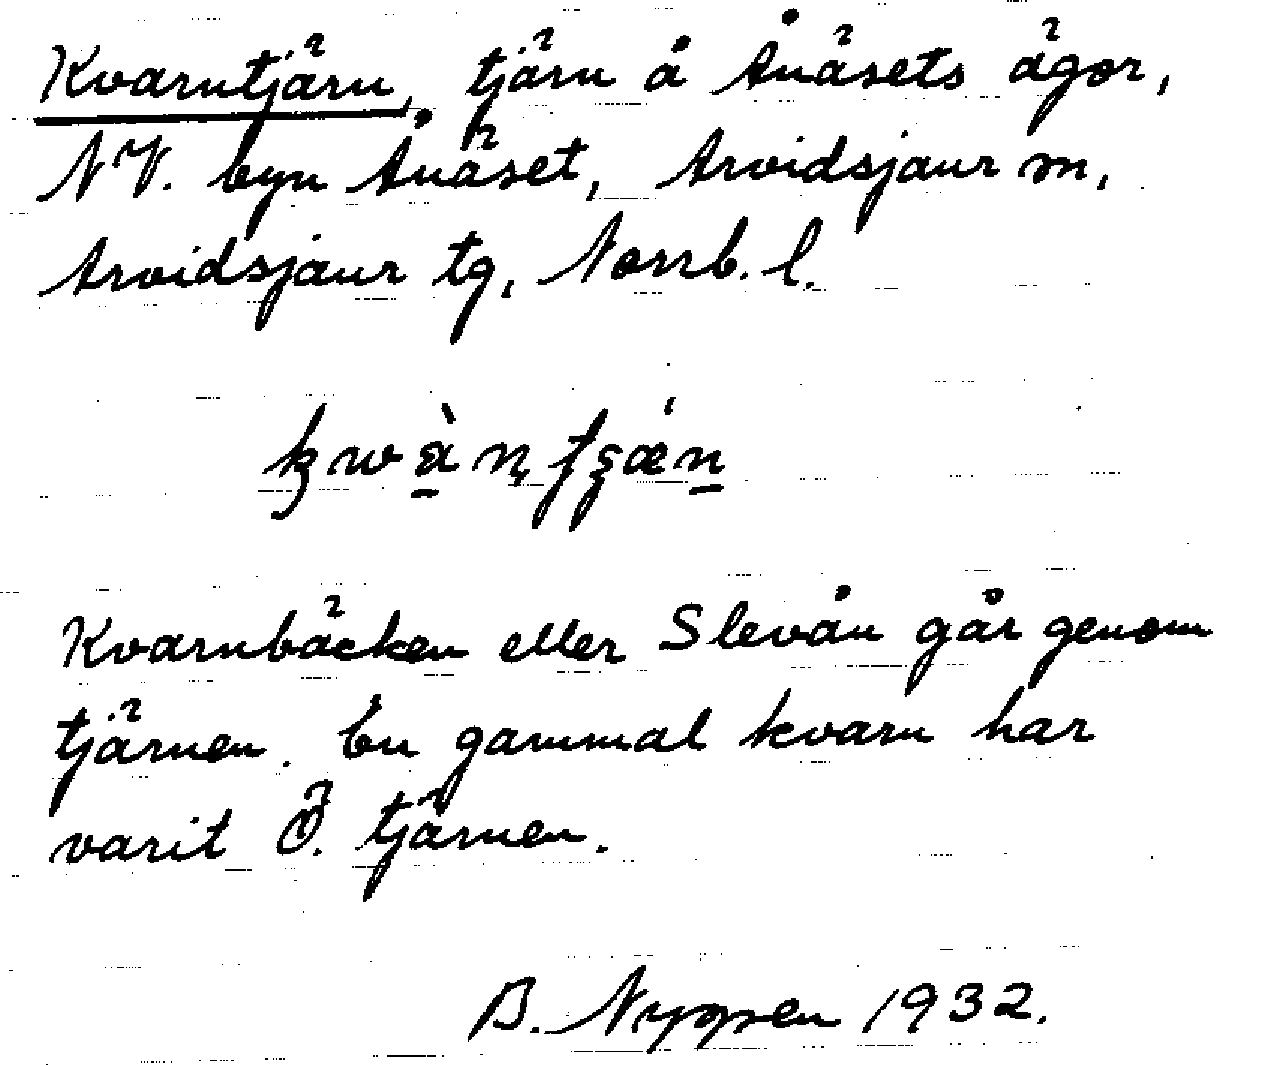 Kvarntjärn, tjärn å Ånäsets ägor,
NV. byn Ånäset, Arvidsjaur sn,
Arvidsjaur tg, Norrb. l.
Kvarnbäcken eller Slevån går genom
tjärnen. En gammal kvarn har
varit Ö. tjärnen.
B. 1932.